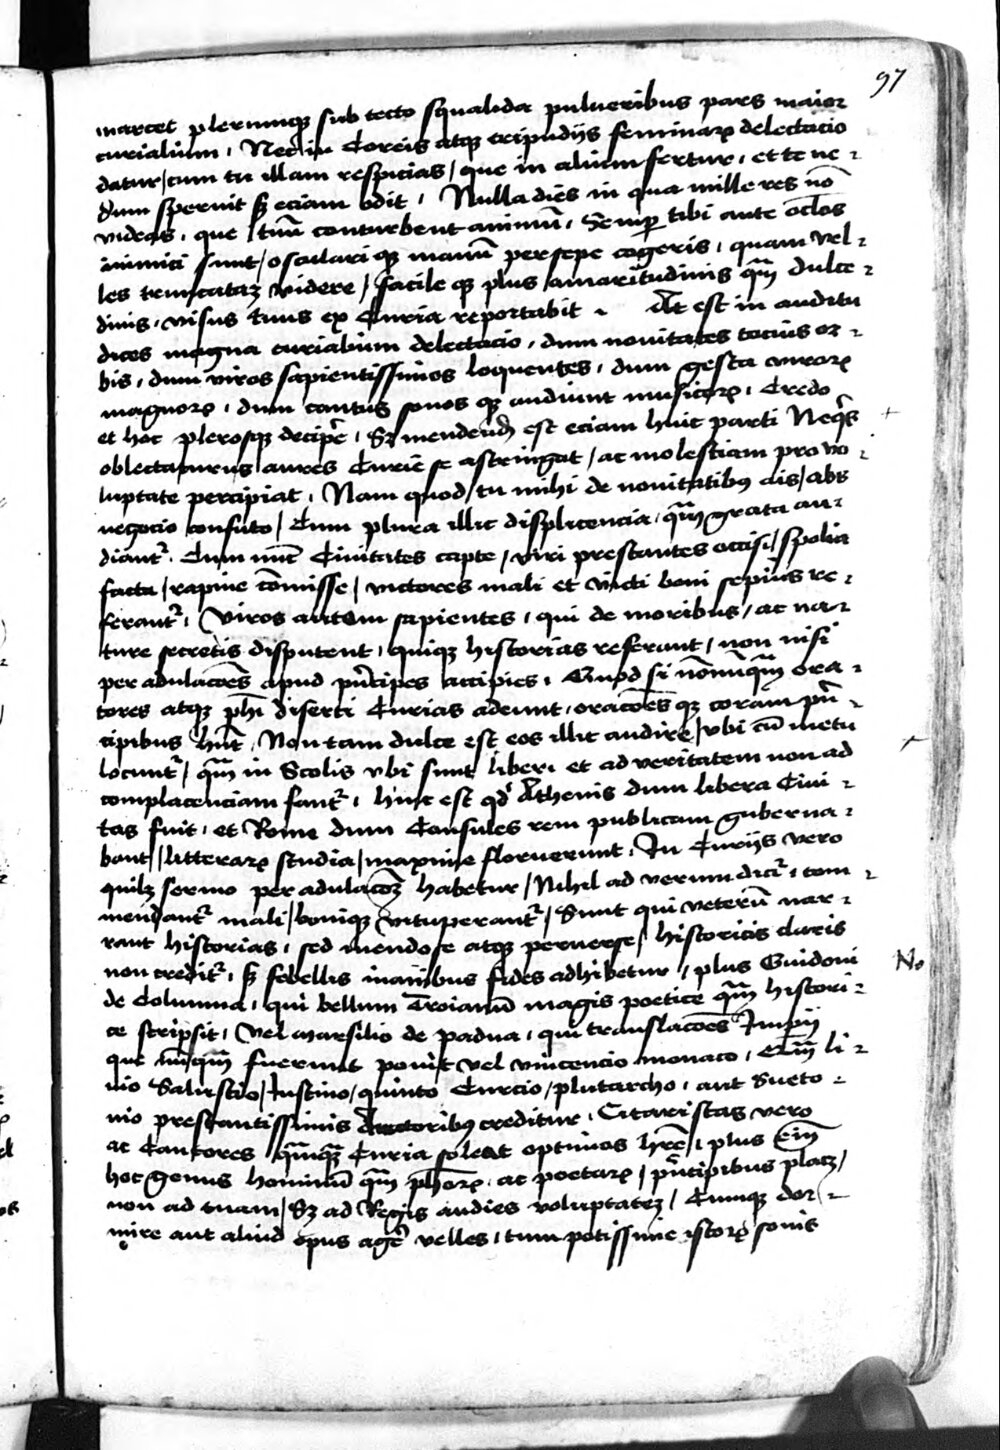 97
marcet plerumqꝫ sub tecto squalida pulueribus pars maior
curialium . Nec in Coreis atqꝫ tripudijs feminarꝝ delectacio
datur / cum tu illam respicias / que in alium fertur . et te ne -
dum spernit sꝫ eciam odit . Nulla dies in qua mille res nō
videas . que tuū conturbent animū . Semꝑ tibi ante oclos
inimici sunt / osculari qꝫ manū persepe cogeris . quam vel -
les truncataꝫ videre / facile qꝫ plus amaritudinis qm̄ dulce -
dinis . visus tuus ex Curia reportabit . At est in auditu
dices magna curialium delectacio . dum nouitates tocius or -
bis . dum viros sapientissimos loquentes . dum gesta virorꝝ
magnorꝝ . dum cantus sonos qꝫ audiunt musicorꝝ . Credo
et hoc plerosqꝫ decipe᷑ . Sꝫ mendendū est eciam huic parti Neqꝫs +
oblectaturus aures Curie se astringat / ac molestiam pro vo -
luptate percipiat . Nam quod / tu mihi de nouitatibꝰ ais / abs
negocio confuto / Cum plura illic displicencia . qm̄ grata au -
diantr᷑ . Cum nūc Ciuitates capte / viri prestantes occisi / spolia
facta / rapine cōmisse / victores mali et victi boni sepius re -
ferantr᷑ . Viros autem sapientes . qui de moribus / ac na -
ture secretis disputent . quiqꝫ historias referant / non nisi
per adulacōes apud pn̄cipes accipies . Quod si nōnunqm̄ ora -
tores atqꝫ ph̄i diserti Curias adeunt . oracōes qꝫ coram pn̄ -
cipibus hn̄t . Non tam dulce est eos illic audire / vbi cū metu
locuntr᷑ / qm̄ in Scolis vbi sunt liberi et ad veritatem non ad
complacenciam fantr᷑ . hinc est qd̄ Athenis dum libera Ciui -
tas fuit . et Rome dum Consules rem publicam guberna -
bant / litterarꝝ studia / maxime floruerunt . In Curijs vero
quilꝫ sermo per adulacōꝫ habetur / Nihil ad verum dicr᷑ . com -
mendantr᷑ mali / boniqꝫ vituperantr᷑ / Sunt qui veterū nar -
rant historias . sed mendose atqꝫ peruerse / historicis claris
non creditr᷑ . sꝫ febellis inanibus fides adhibetur / plus Guidoni No
de Columna . qui bellum Troianū magis poetice qm̄ histori -
ce scripsit . Vel Marsilio de padua . qui translacōes Imperij
que nūqm̄ fuerunt ponit vel vincencio monaco . Qm̄ li -
uio Salustio / Iustino / quinto Curcio / plutarcho . aut Sueto -
nio prestantissimis Auctoribꝰ creditur . Citaristas vero
ac Cantores qm̄qm̄ Curia soleat optimos hr̄e . plus eni͞m
hoc genus hominū qm̄ ph̄orꝝ . ac poetarꝝ / pn̄cipibus placꝫ /
non ad tuam / Sꝫ ad Regis audies voluptateꝫ / Cumqꝫ dor -
mire aut aliud opus age᷑ velles . tum potissime istorꝝ sonis